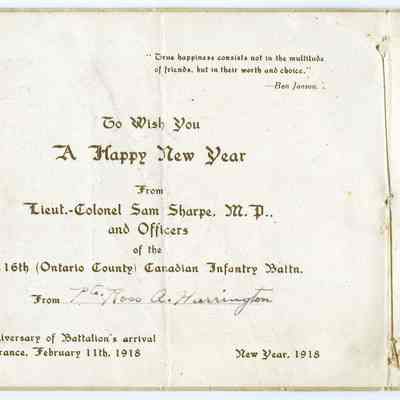 "True happiness consists not in the multitude
of friends, but in their worth and choice."
—Ben Jonson.
To Wish You
A Happy New Year
From
Lieut.-Colonel Sam Sharpe, M.P.,
and Officers
of the
16th (Ontario County) Canadian Infantry Battn.
From Pte. Ross A. Harrington
iversary of Battalion's arrival
rance, February 11th, 1918
New Year, 1918